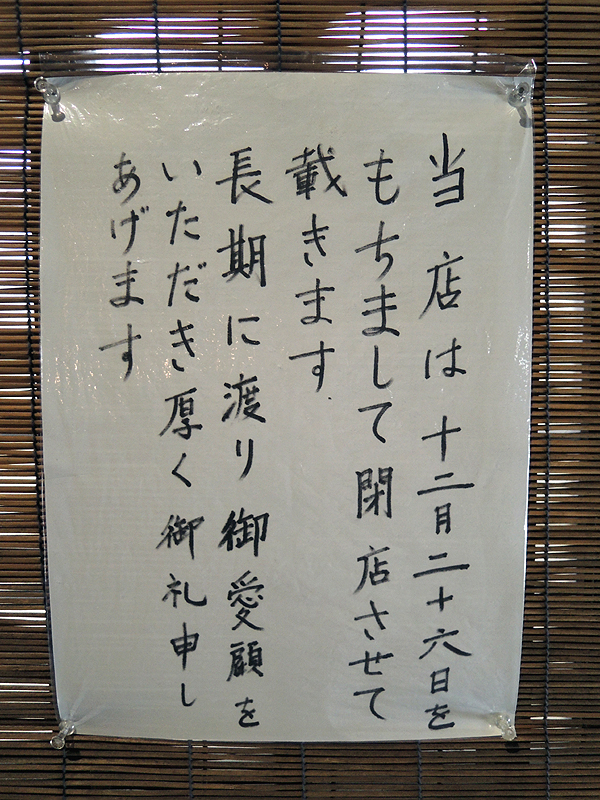 当店は十二月二十六日を
もちまして閉店させて
載きます
長期に渡り御愛顧を
いただき厚く御礼申し
あげます